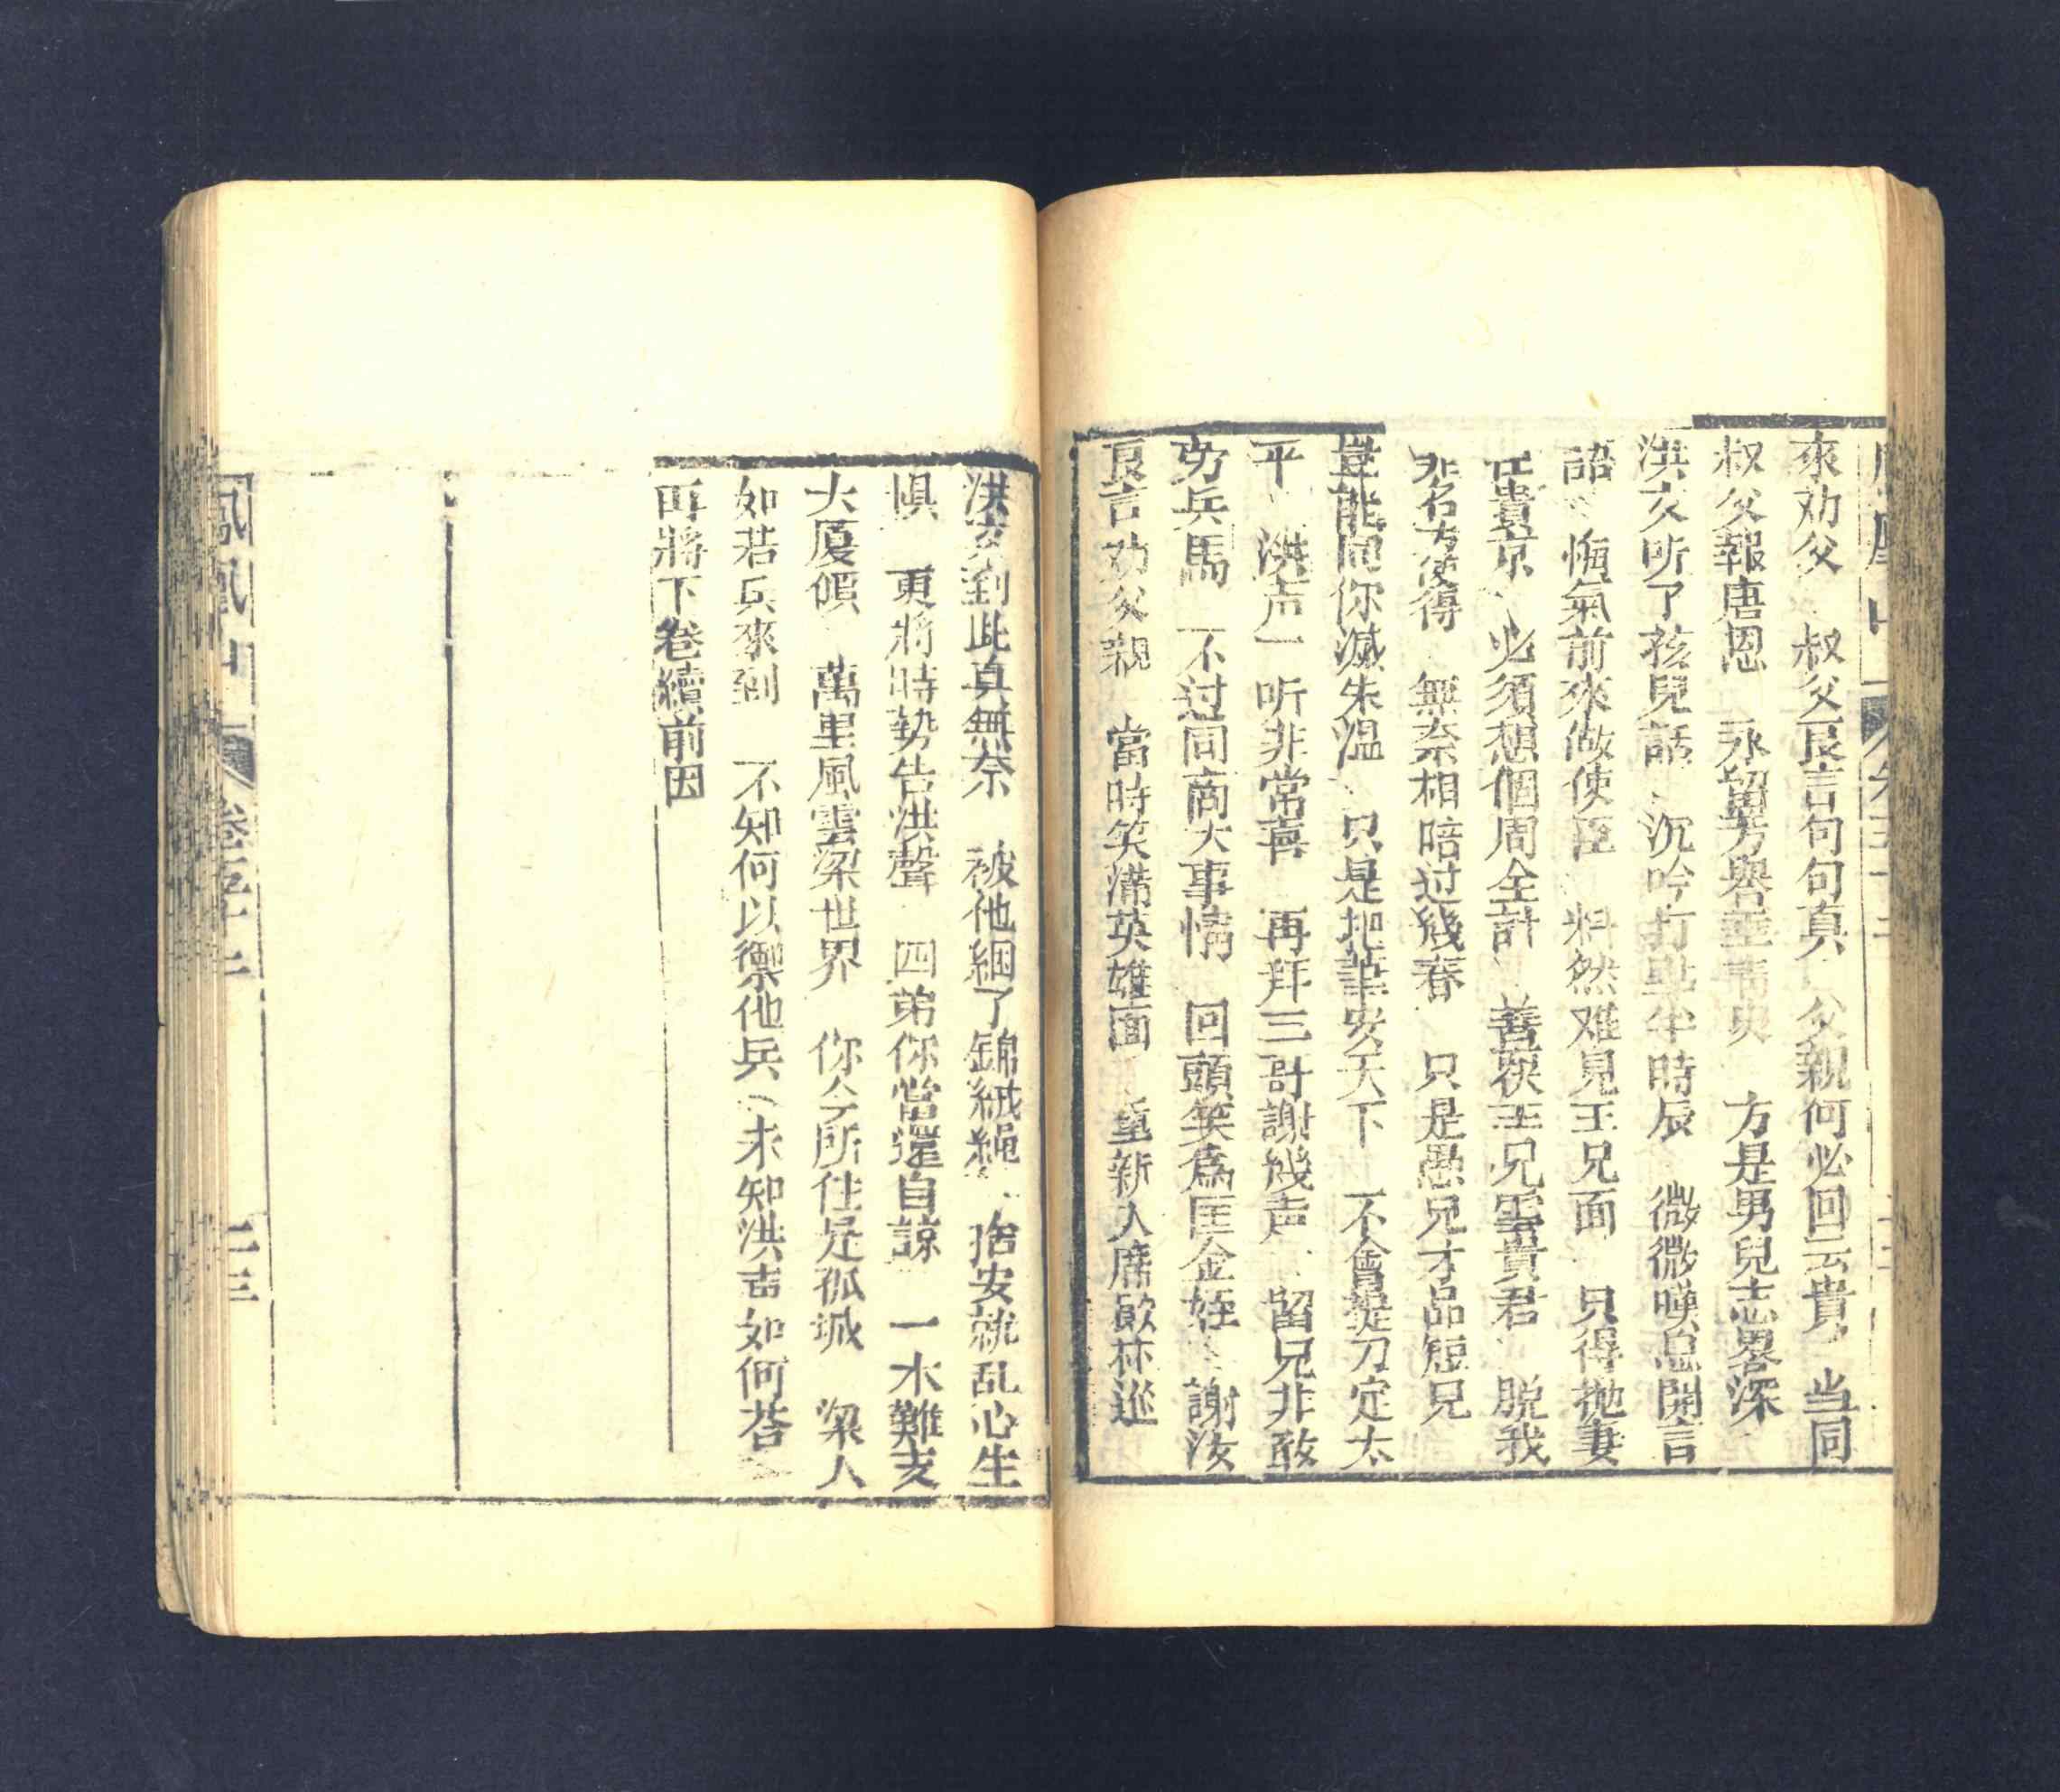 來劝父 叔父良言句句真 父親何必回云貴 当同
叔父報唐恩 永留芳譽垂青史 方是男兒志畧深
洪文听了孩兒話 沉吟打坐半時辰 微微嘆息開言
語 悔氣前來做使臣 料然难見王兄面 只得抛妻
在貴京 必須想個周全計 善覆王兄雲貴君 脱我
非名方使得 無奈相陪过幾春 只是愚兄才品短 兄
豈能同你滅朱温 只是把筆安天下 不會提刀定太
平 洪声一听非常喜 再拜三哥謝幾声 留兄非敢
劳兵馬 不过同商大事情 回頭笑爲匡金姪 謝汝
良言劝父親 當時笑滿英雄面 重新入席飲杯巡
洪文到此真無奈 被他綑了錦絨繩 捨安就乱心生
惧 更將時势告洪聲 四弟你當還自諒 一木難支
大厦傾 萬里風雲梁世界 你今所住是孤城 梁人
如若兵來到 不知何以禦他兵 未知洪声如何荅
再將下卷續前因
鳳凰山 卷五十二 二三